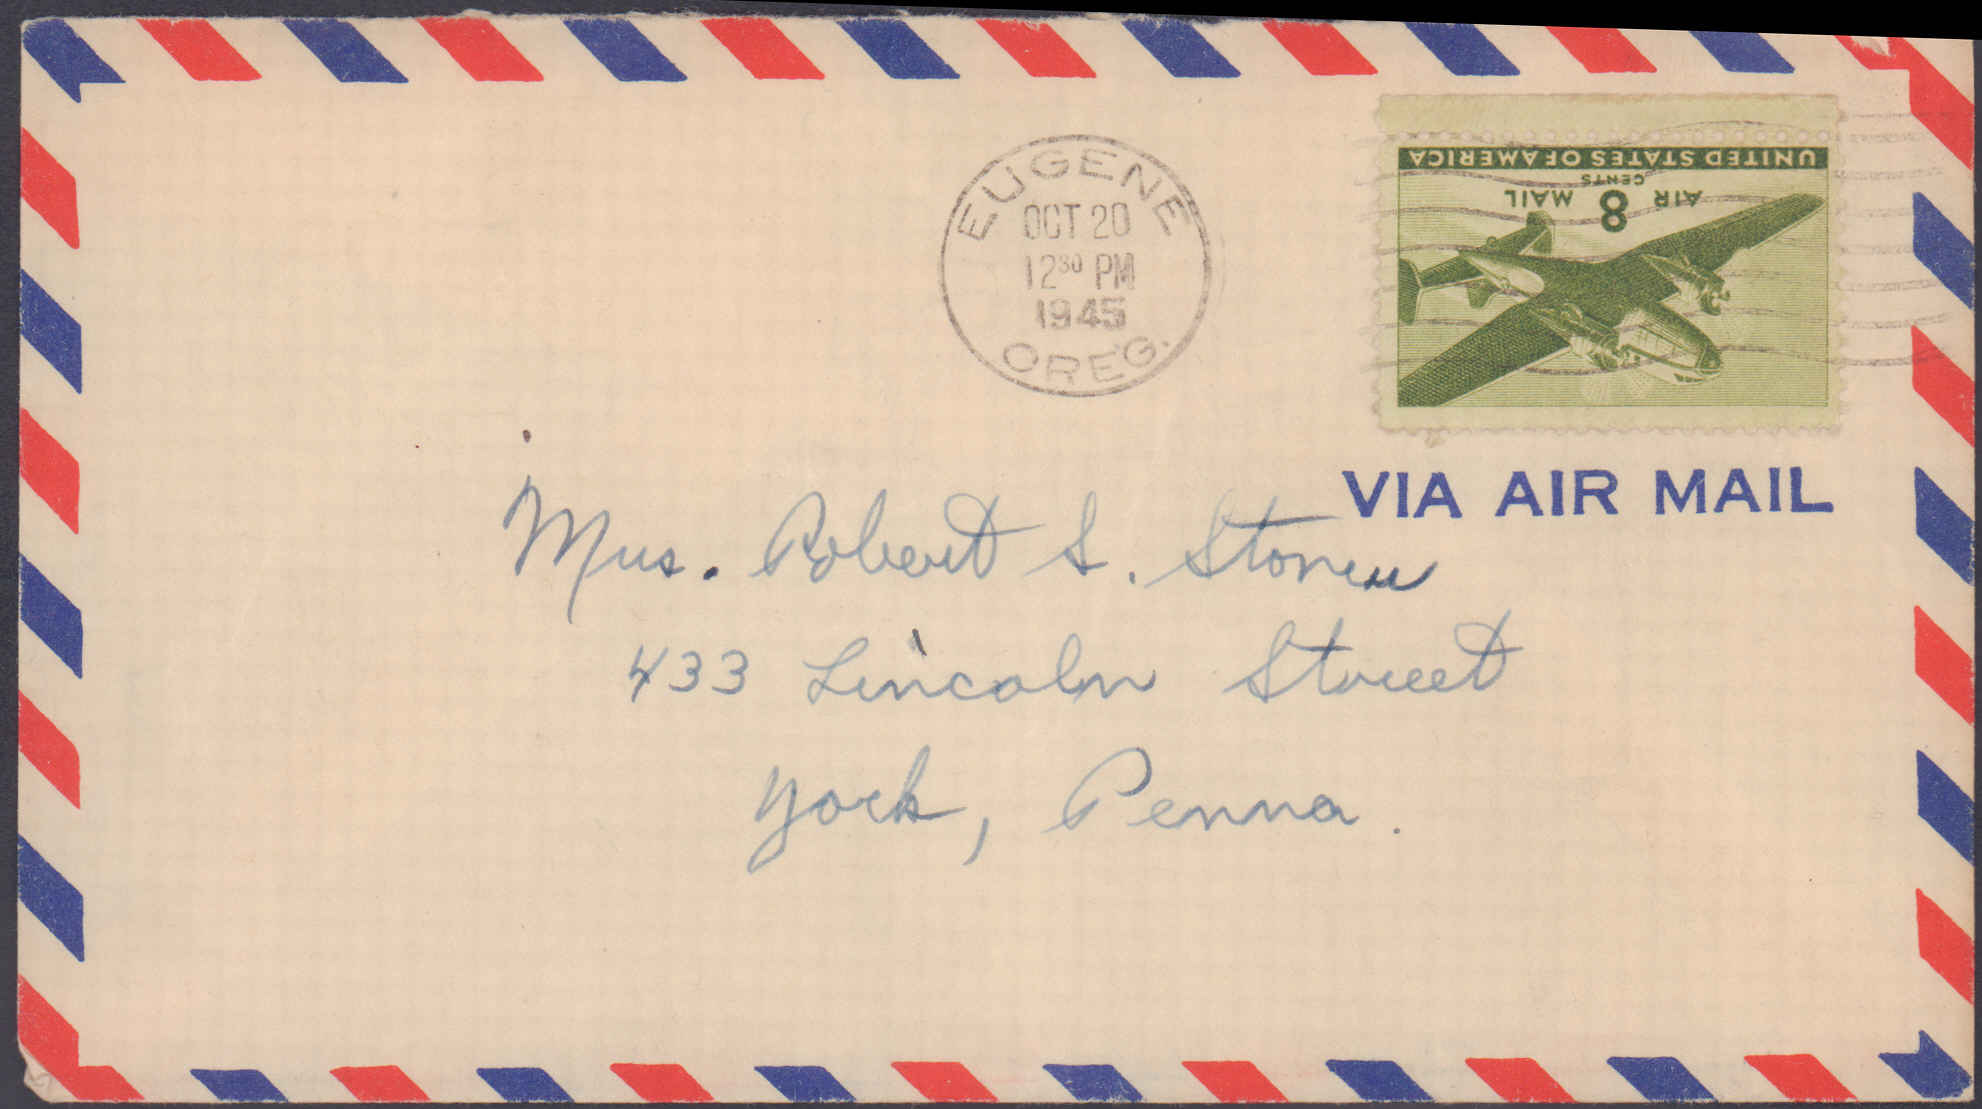 EUGENE
OCT 20
12 30 PM
1945
OREG.
UNITED STATES OF AMERICA
AIR 8 MAIL
CENTS
VIA AIR MAIL
Mrs. Robert S. Stoner
433 Lincoln Street
York, Penna.